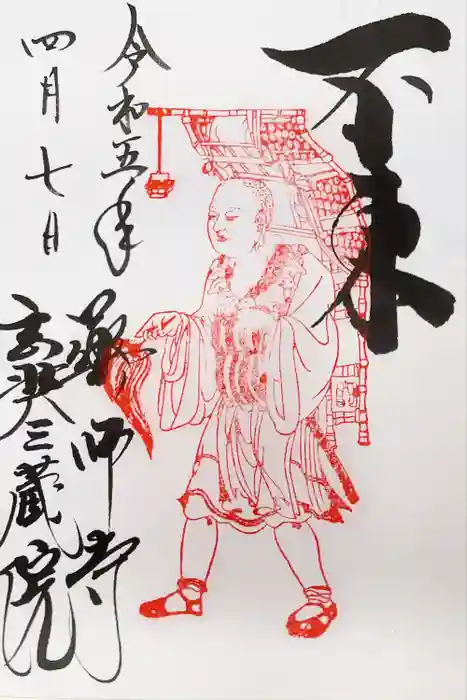 不東
令和五年
四月七日
薬師寺
玄奘三蔵院